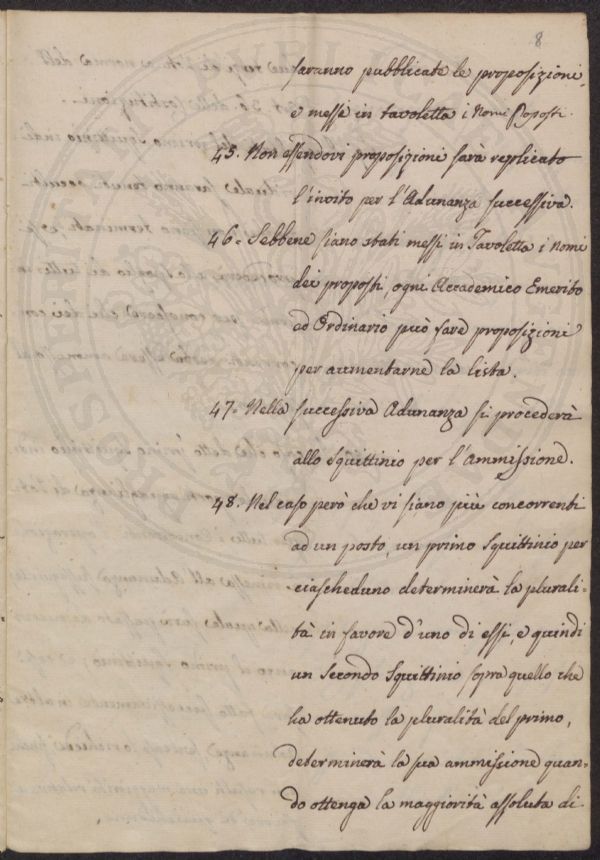 8
saranno pubblicate le proposizioni,
e messe in tavoletta i Nomi Proposti.
45. Non essendovi proposizioni sarà replicato
l'invito per l'Adunanza successiva.
46. Sebbene siano stati messi in Tavoletta i nomi
dei proposti, ogni Accademico Emerito
ed Ordinario può fare proposizioni
per aumentarne la lista.
47. Nella successiva Adunanza si procederà
allo Squittinio per l'Ammissione.
48. Nel caso però che vi siano più concorrenti
ad un posto, un primo Squittinio per
ciascheduno determinerà la plurali-
tà in favore d'uno di essi, e quindi
un Secondo Squittinio sopra quello che
ha ottenuto la pluralità del primo,
determinerà la sua ammissione quan-
do ottenga la maggiorità assoluta di